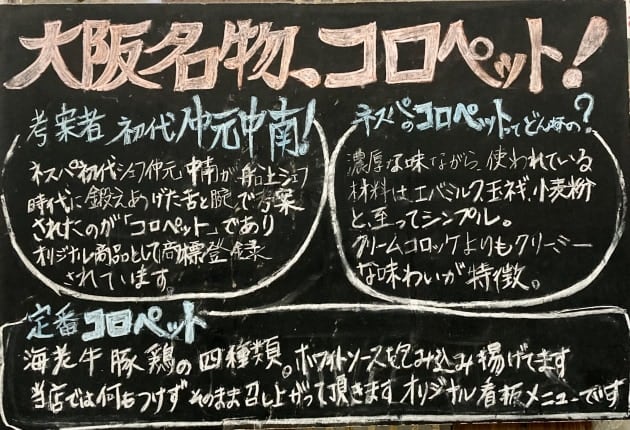 大阪名物、コロペット!
考案者 初代 仲元中南!
ネスパ初代シェフ仲元中南が船上シェフ
時代に鍛えあげた舌と腕で考案
されたのが「コロペット」であり
オリジナル商品として商標登録
されています。
ネスパのコロペットってどんなの?
濃厚な味ながら、使われている
材料は、エバミルク、玉ネギ、小麦粉
と、至ってシンプル。
クリームコロッケよりもクリーミー
な味わいが特徴。
定番コロペット
海老牛豚鶏の四種類。ホワイトソースを包み込み揚げてます
当店では何もつけずそのまま召し上がって頂きますオリジナル看板メニューです